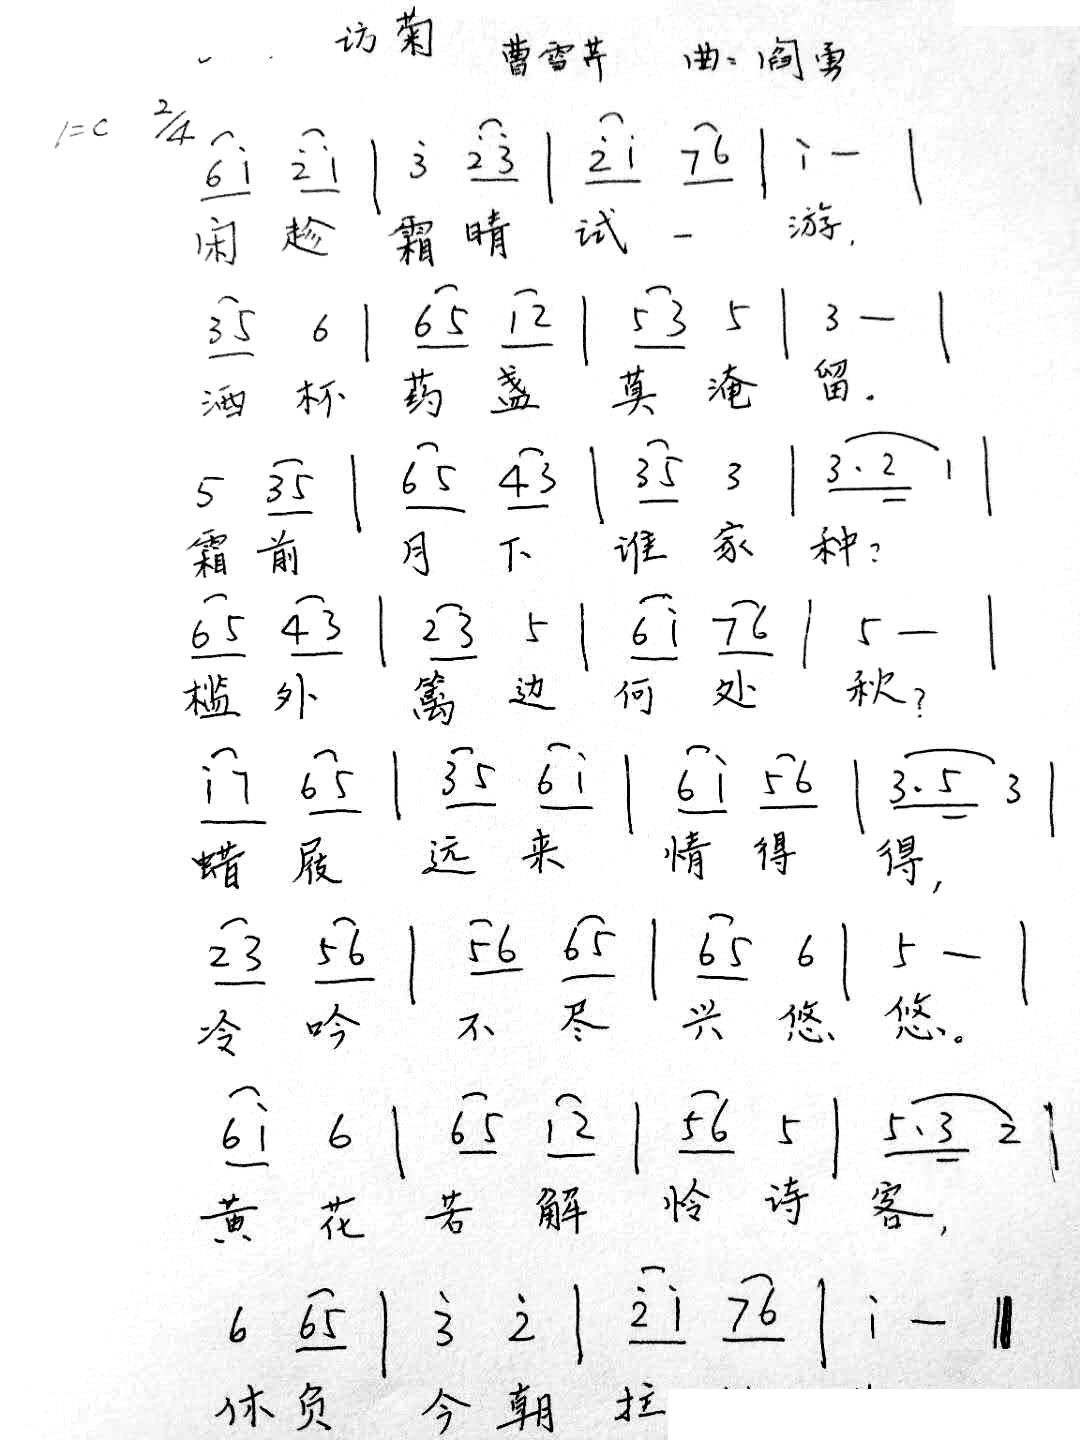 访菊
曹雪芹 曲:阎勇
1=C 2/4
6i 2̇i | 3̇ 2̇3̇ | 2̇i 76 | i — |
闲趁霜晴试一游,
35 6 | 65 12 | 53 5 | 3 — |
酒杯药盏莫淹留。
5 35 | 65 43 | 35 3 | 3·2 1 |
霜前月下谁家种?
65 43 | 23 5 | 6i 76 | 5 — |
槛外篱边何处秋?
i7 65 | 35 6i | 6i 56 | 3·5 3 |
蜡屐远来情得得,
23 56 | 56 65 | 65 6 | 5 — |
冷吟不尽兴悠悠。
6i 6 | 65 12 | 56 5 | 5·3 2 |
黄花若解怜诗客,
6 65 | 3̇ 2̇ | 2̇i 76 | i — ‖
休负今朝拄